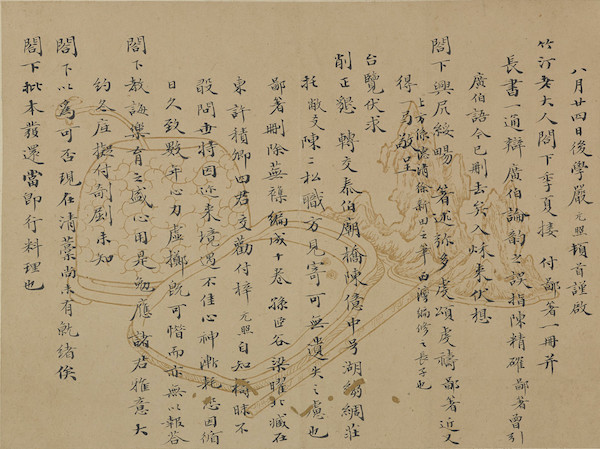 八月廿四日後學嚴元照頓首謹啟
竹汀老大人閣下季夏接 付鄙著一冊并
長書一通辯廣伯論韵之誤指陳精確鄙著曾引
廣伯語今已刪去矣入秋來伏想
閣下興凥綏暢 著述弥多虔頌虔禱鄙著近又
得一 敬呈 上方添 清徐新田之筆 灣編修之長子也
台覽伏求
削正懇 轉交泰伯廟橋陳億中号湖縐綢莊
托敝友陳二松職方見寄可無遺失之慮也
鄙著刪除蕪穢編成十卷孫 谷梁曜北臧在
東許積卿四君交勸付梓元照自知檮昧不
敢問世特因近來境遇不佳心神漸耗恐因循
日久致數年心力虛擲旣可惜而亦無以報答
閣下教誨樂育之盛心用是勉應諸君雅意大
約冬 擬付剞劂未知
閣下以為可否現在清藁尚未有就緒俟
閣下批本發還當即行料理也